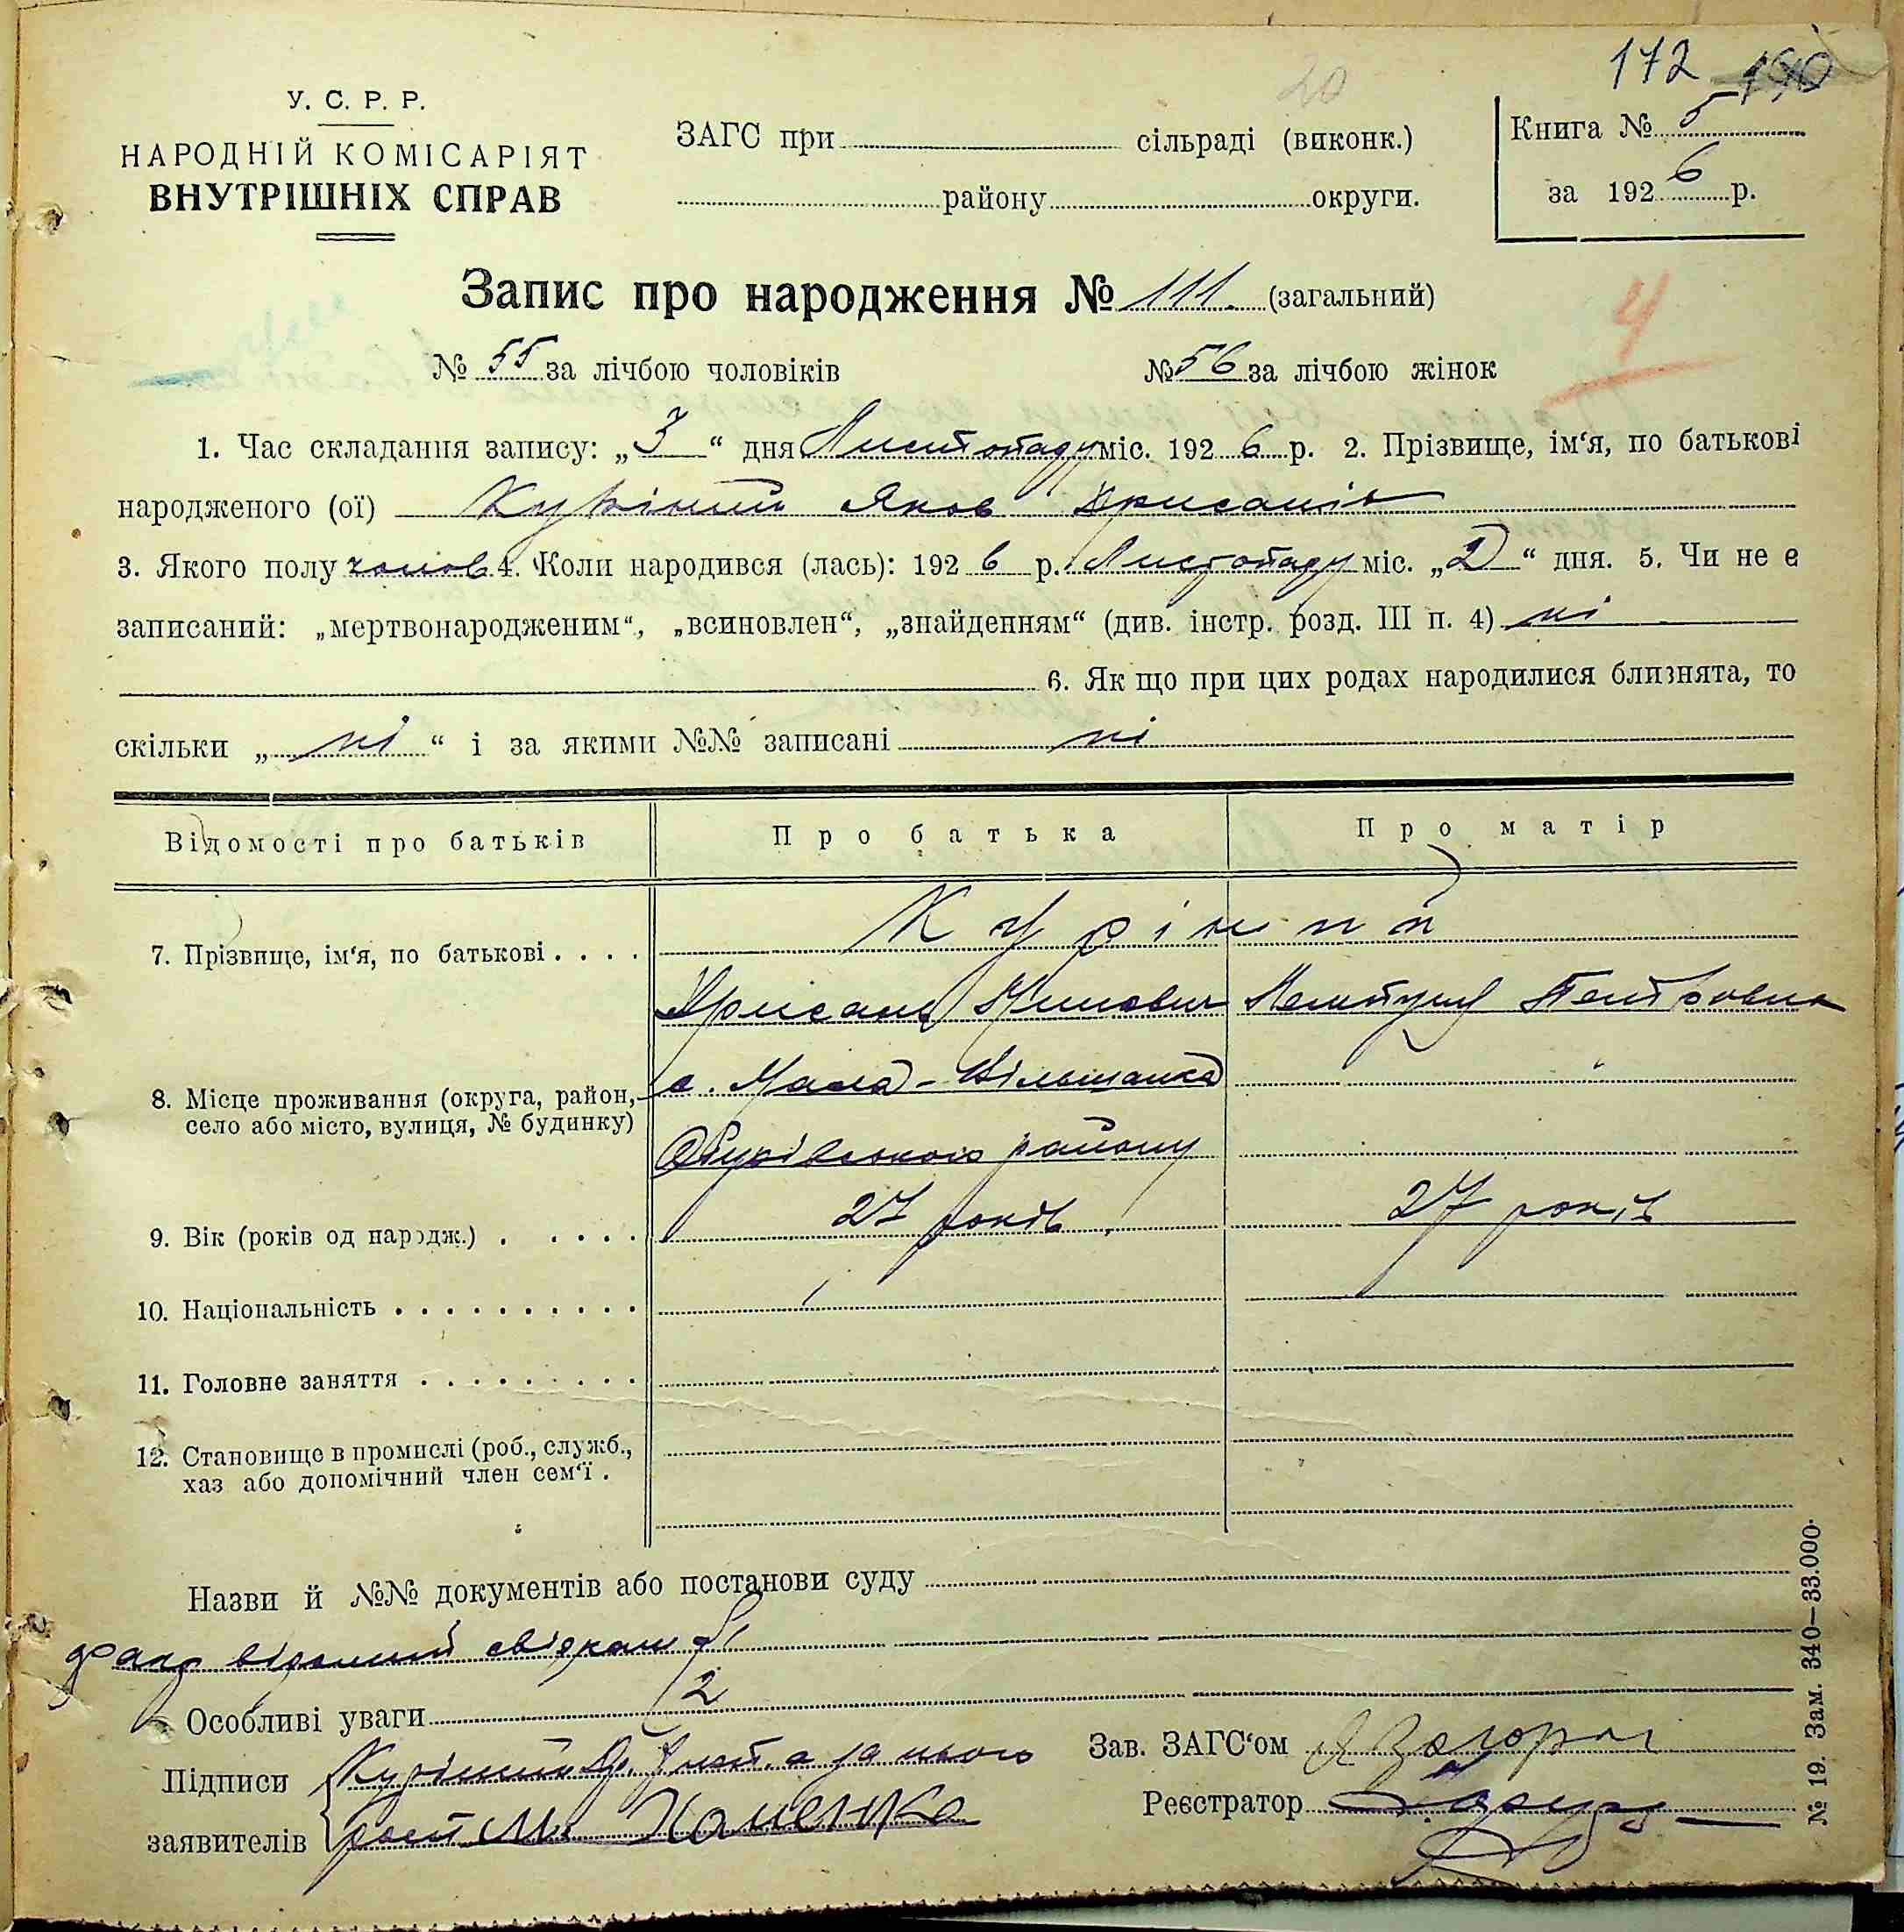 172 190
20
У. С. Р. Р.
НАРОДНІЙ КОМІСАРІЯТ
ВНУТРІШНІХ СПРАВ
ЗАГС при сільраді (виконк.)
району округи.
Книга № 5
за 1926 р.
Запис про народження № 111. (загальний)
4
№ 55 за лічбою чоловіків № 56 за лічбою жінок
1. Час складання запису: „3“ дня Листопаду міс. 1926 р. 2. Прізвище, ім‘я, по батькові
народженого (ої) Курінний Яков Хрисанів
3. Якого полу чолов 4. Коли народився (лась): 1926 р. Листопаду міс. „2“ дня. 5. Чи не є
записаний: „мертвонародженим“, „всиновлен“, „знайденням“ (див. інстр. розд. III п. 4) ні
6. Як що при цих родах народилися близнята, то
скільки „ні“ і за якими №№ записані ні
Відомості про батьків Про батька Про матір
7. Прізвище, ім‘я, по батькові . . . . Курінний
Хрисань Петровна
8. Місце проживання (округа, район, село або місто, вулиця, № будинку) с. Мала-Вільшанка "
Обухівського району
9. Вік (років од народж.) . . . . . 27 років 27 років
10. Національність . . . . . . . . . .
11. Головне заняття . . . . . . . . .
12. Становище в промислі (роб., служб.,
хаз або допомічний член сем‘ї .
Назви й №№ документів або постанови суду
факт відомий свідкам 1
2
Особливі уваги
Підписи Курінний а за нього
заявителів
Зав. ЗАГС‘ом
Реєстратор
№ 19. Зам. 340—33.000.